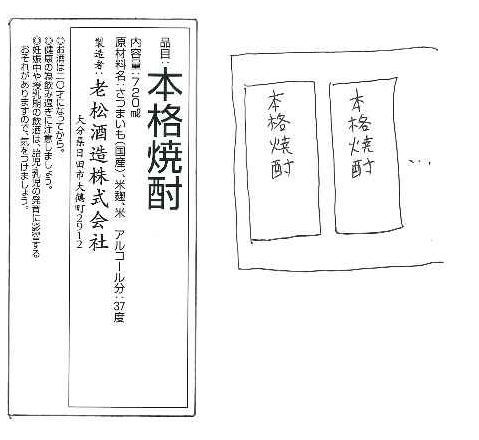 品目：本格焼酎
内容量：720㎖
原材料名：さつまいも(国産)、米麹、米　アルコール分：37度
製造者：老松酒造株式会社
大分県日田市大鶴町2912
◎お酒は二〇才になってから。
◎健康の為飲み過ぎに注意しましょう。
◎妊娠中や授乳期の飲酒は、胎児・乳児の発育に影響する
おそれがありますので、気をつけましょう。
本格焼酎
本格焼酎
…